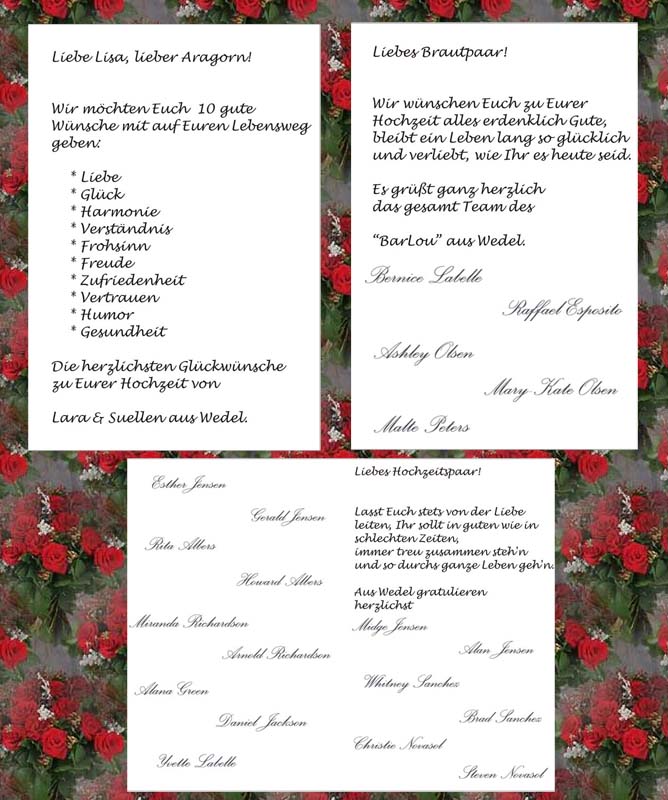 Liebe Lisa, lieber Aragorn!
Wir möchten Euch 10 gute
Wünsche mit auf Euren Lebensweg
geben:
* Liebe
* Glück
* Harmonie
* Verständnis
* Frohsinn
* Freude
* Zufriedenheit
* Vertrauen
* Humor
* Gesundheit
Die herzlichsten Glückwünsche
zu Eurer Hochzeit von
Lara & Suellen aus Wedel.
Liebes Brautpaar!
Wir wünschen Euch zu Eurer
Hochzeit alles erdenklich Gute,
bleibt ein Leben lang so glücklich
und verliebt, wie Ihr es heute seid.
Es grüßt ganz herzlich
das gesamt Team des
“BarLou” aus Wedel.
Bernice Labelle
Raffael Esposito
Ashley Olsen
Mary-Kate Olsen
Malte Peters
Esther Jensen
Gerald Jensen
Rita Albers
Howard Albers
Miranda Richardson
Arnold Richardson
Alana Green
Daniel Jackson
Yvette Labelle
Liebes Hochzeitspaar!
Lasst Euch stets von der Liebe
leiten, Ihr sollt in guten wie in
schlechten Zeiten,
immer treu zusammen steh'n
und so durchs ganze Leben geh'n.
Aus Wedel gratulieren
herzlichst
Midge Jensen
Alan Jensen
Whitney Sanchez
Brad Sanchez
Christie Novasol
Steven Novasol